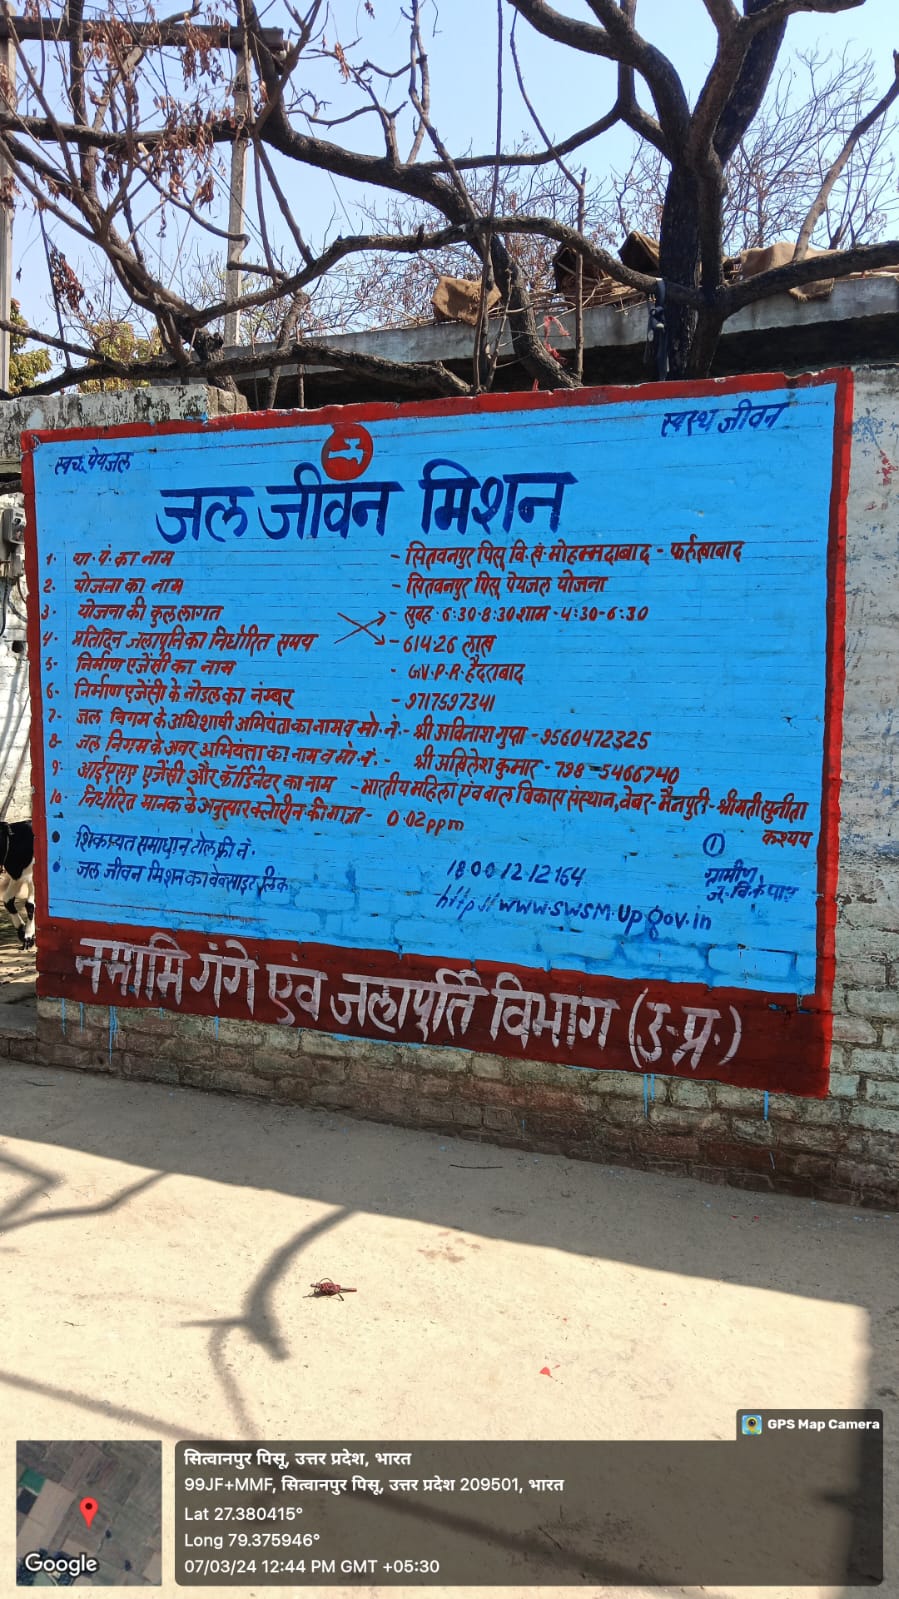 स्वच्छ पेयजल
स्वस्थ जीवन
जल जीवन मिशन
1. ग्रा. पं. का नाम - सितवनपुर पिसू वि. खं. मोहम्मदाबाद - फर्रुखाबाद
2. योजना का नाम - सितवनपुर पिसू पेयजल योजना
3. योजना की कुल लागत - सुबह - 6:30-8:30 शाम - 4:30-6:30
4. प्रतिदिन जलापूर्ति का निर्धारित समय - 614.26 लाख
5. निर्माण एजेंसी का नाम - G.V.P.R. हैदराबाद
6. निर्माण एजेंसी के नोडल का नम्बर - 9717597341
7. जल निगम के अधिशाषी अभियंता का नाम व मो. नं. - श्री अविनाश गुप्ता - 9560472325
8. जल निगम के अवर अभियंता का नाम व मो. नं. - श्री अखिलेश कुमार - 798-5466740
9. आईएसए एजेंसी और कॉर्डिनेटर का नाम - भारतीय महिला एंव बाल विकास संस्थान, वेबर - मैनपुरी - श्रीमती सुनीता कश्यप
10. निर्धारित मानक के अनुसार क्लोरीन की मात्रा - 0.02 ppm
① ग्रामीण
• शिकायत समाधान टोल फ्री नं. 18.00.12.12.164
• जल जीवन मिशन का वेबसाइट लिंक http//www.swsm.up.gov.in
नमामि गंगे एंव जलापूर्ति विभाग (उ.प्र.)
GPS Map Camera
सित्वानपुर पिसू, उत्तर प्रदेश, भारत
99JF+MMF, सित्वानपुर पिसू, उत्तर प्रदेश 209501, भारत
Lat 27.380415°
Long 79.375946°
07/03/24 12:44 PM GMT +05:30
Google